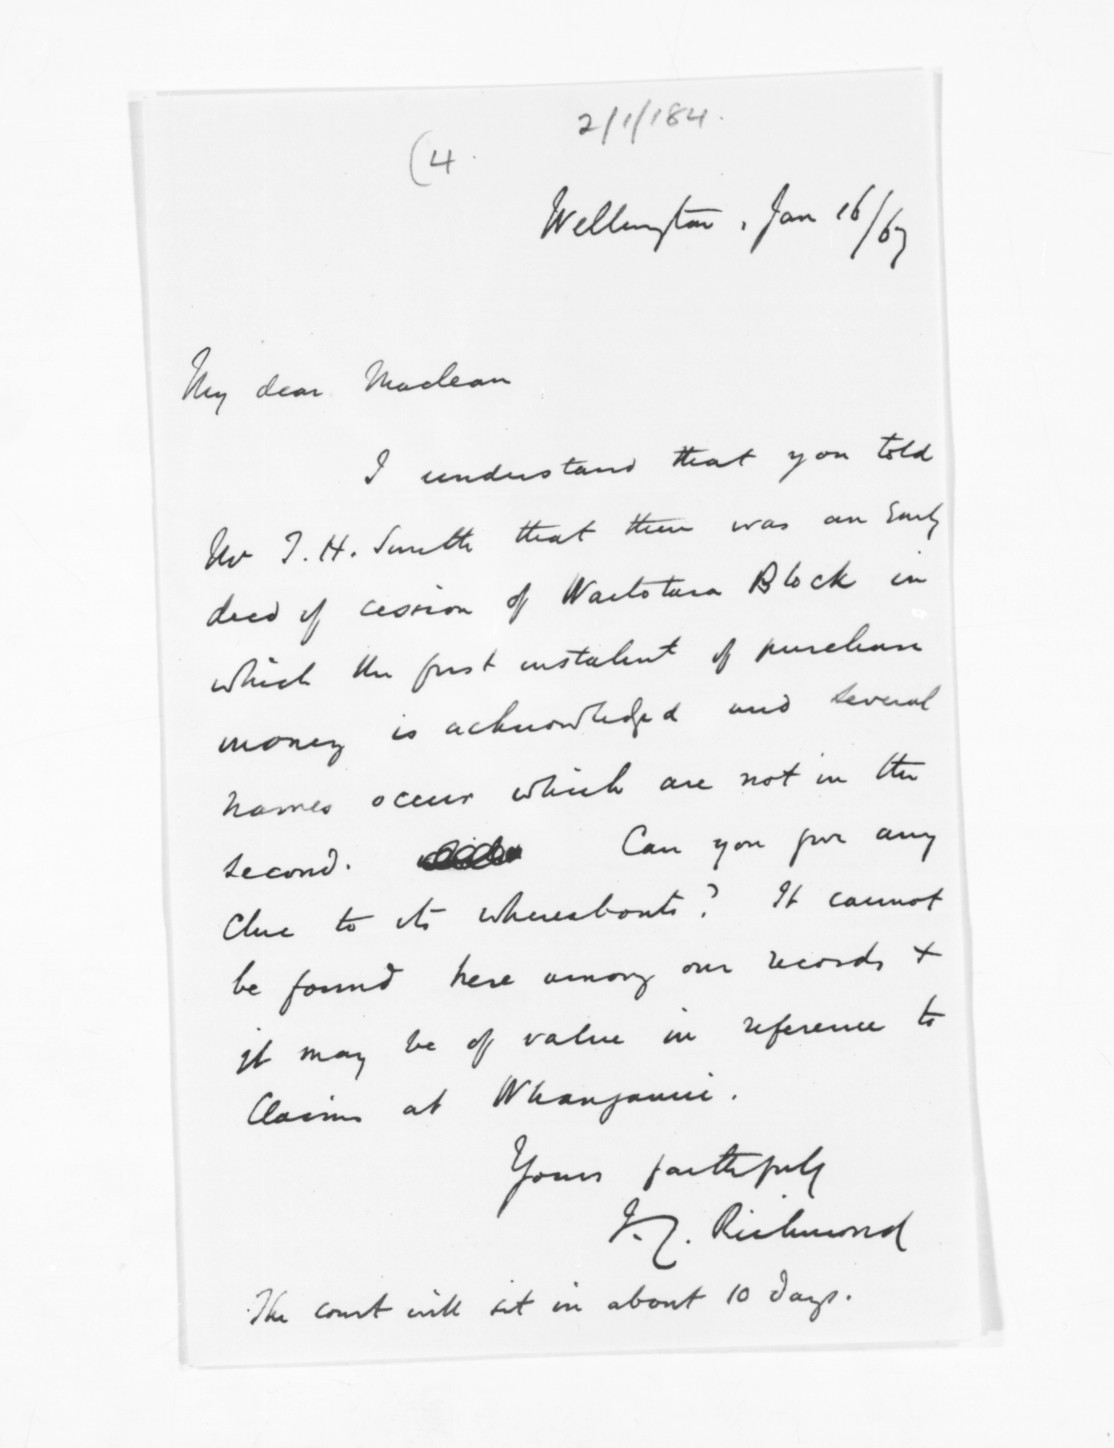 2/1/184.
(4.
Wellington, Jan 16/67
My dear Maclean
I understand that you told
Mr T. H. Smith that there was an Early
deed of cession of Waitotara Block in
which the first instalment of purchase
money is acknowledged and several
names occur which are not in the
second. Can you give any
Clue to its whereabouts? It cannot
be found here among our records &
it may be of value in reference to
Claims at Whanganui.
Yours faithfully
J. C. Richmond
The court will sit in about 10 days.